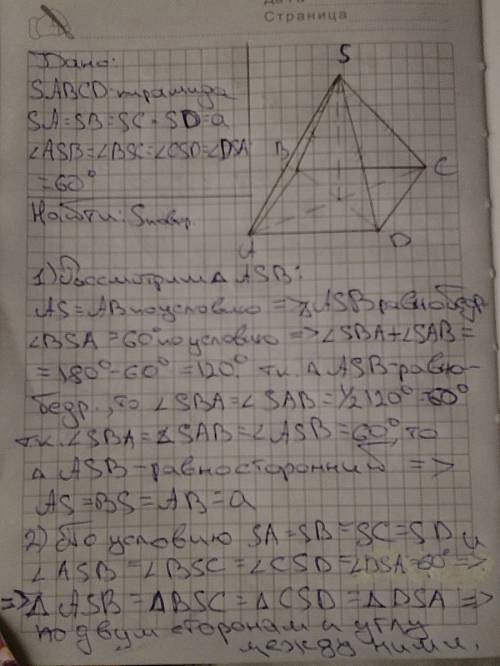 Страница
Дано:
SABCD-пирамида
SA=SB=SC=SD=a
∠ASB=∠BSC=∠CSD=∠DSA
=60°
Найти: Sповр
S
B
C
A
D
1) Рассмотрим △ ASB:
AS=AB по условию => △ASB равнобедр
∠BSA=60° по условию => ∠SBA+∠SAB=
=180°-60°=120°. т.к. △ ASB-равно-
бедр., то ∠SBA=∠SAB=1/2 120°=60°
т.к. ∠SBA=∠SAB=∠ASB=60°, то
△ ASB-равносторонний =>
AS=BS=AB=a
2) По условию SA=SB=SC=SD и
∠ASB=∠BSC=∠CSD=∠DSA=60° =>
=> △ASB=△BSC=△CSD=△DSA =>
по двум сторонам и углу
между ними.